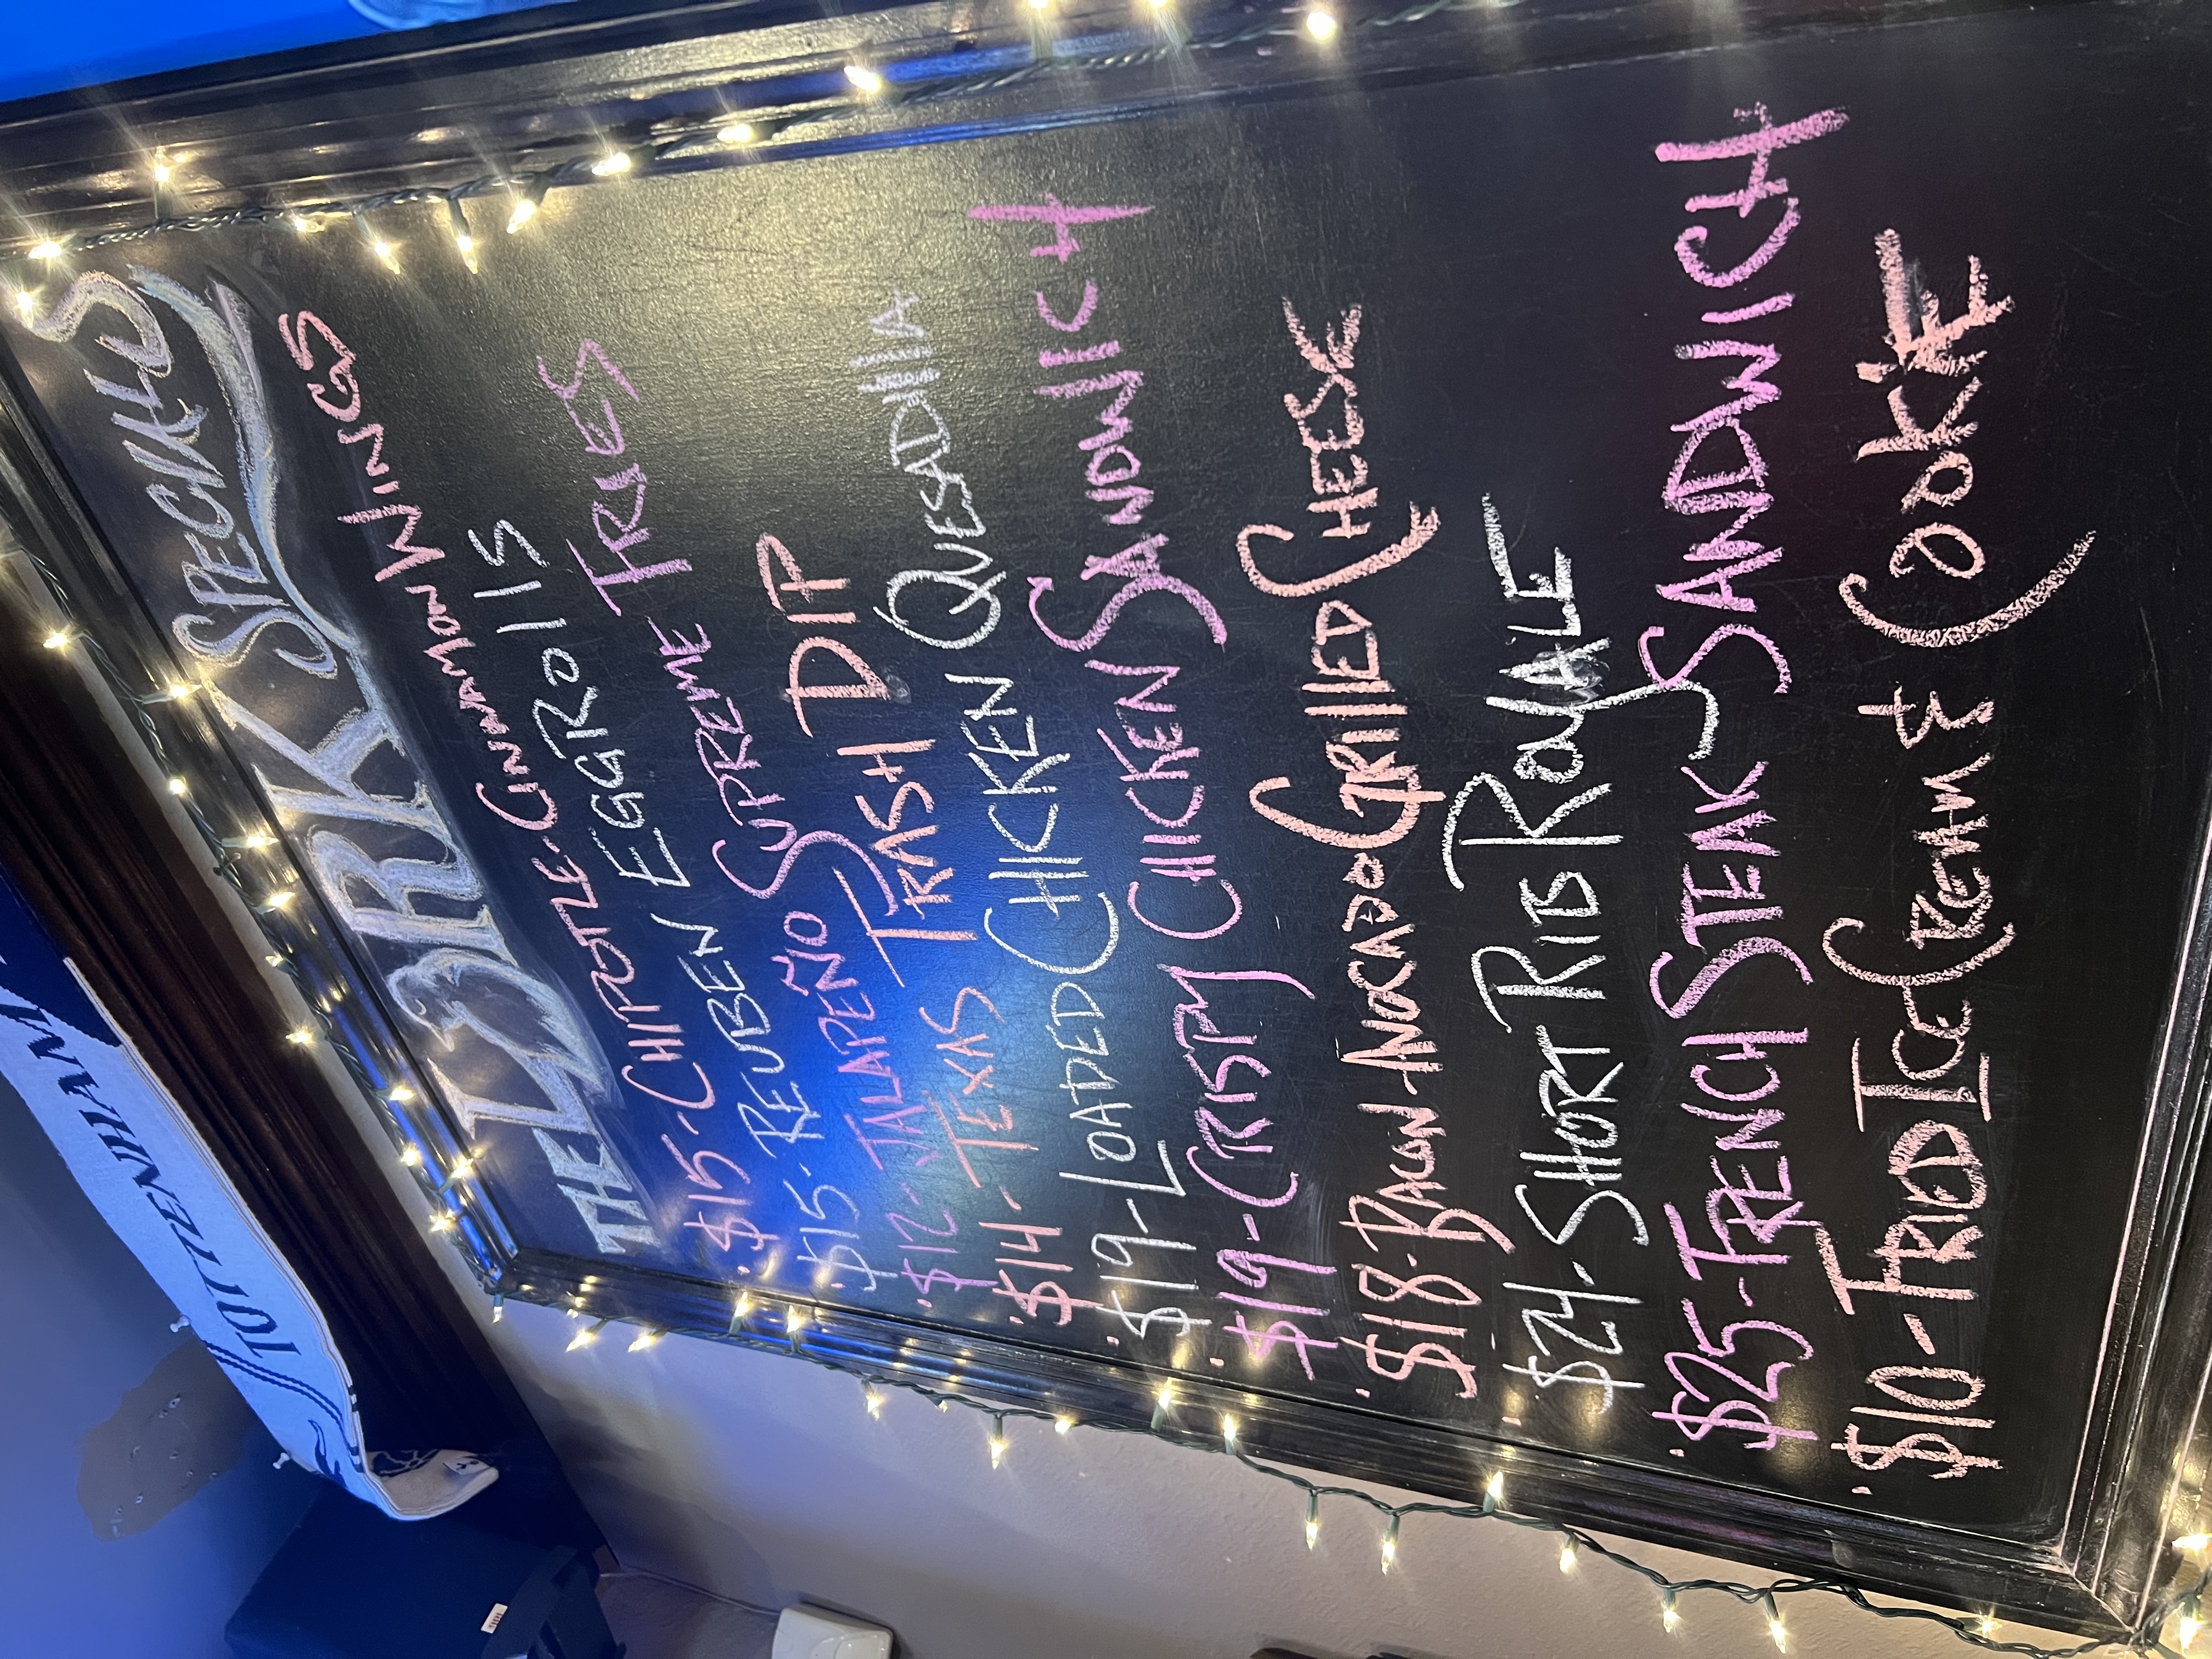 THE LBRK SPECIALS
• $15 - CHIPOTLE-CINNAMON WINGS
• $15 - REUBEN EGGROllS
• $12 - JALAPEÑO SUPREME FRIES
• $14 - TEXAS TRASH DIP
• $19 - LOADED CHICKEN QUESADIllA
• $19 - CRISPY CHICKEN SANDWICH
• $18 - BACON-AVOCADO GRIllED CHEESE
• $24 - SHORT RIB ROYALE
• $25 - FRENCH STEAK SANDWICH
• $10 - FRIED ICE CREAM & COOKIE
TOTTENHAM